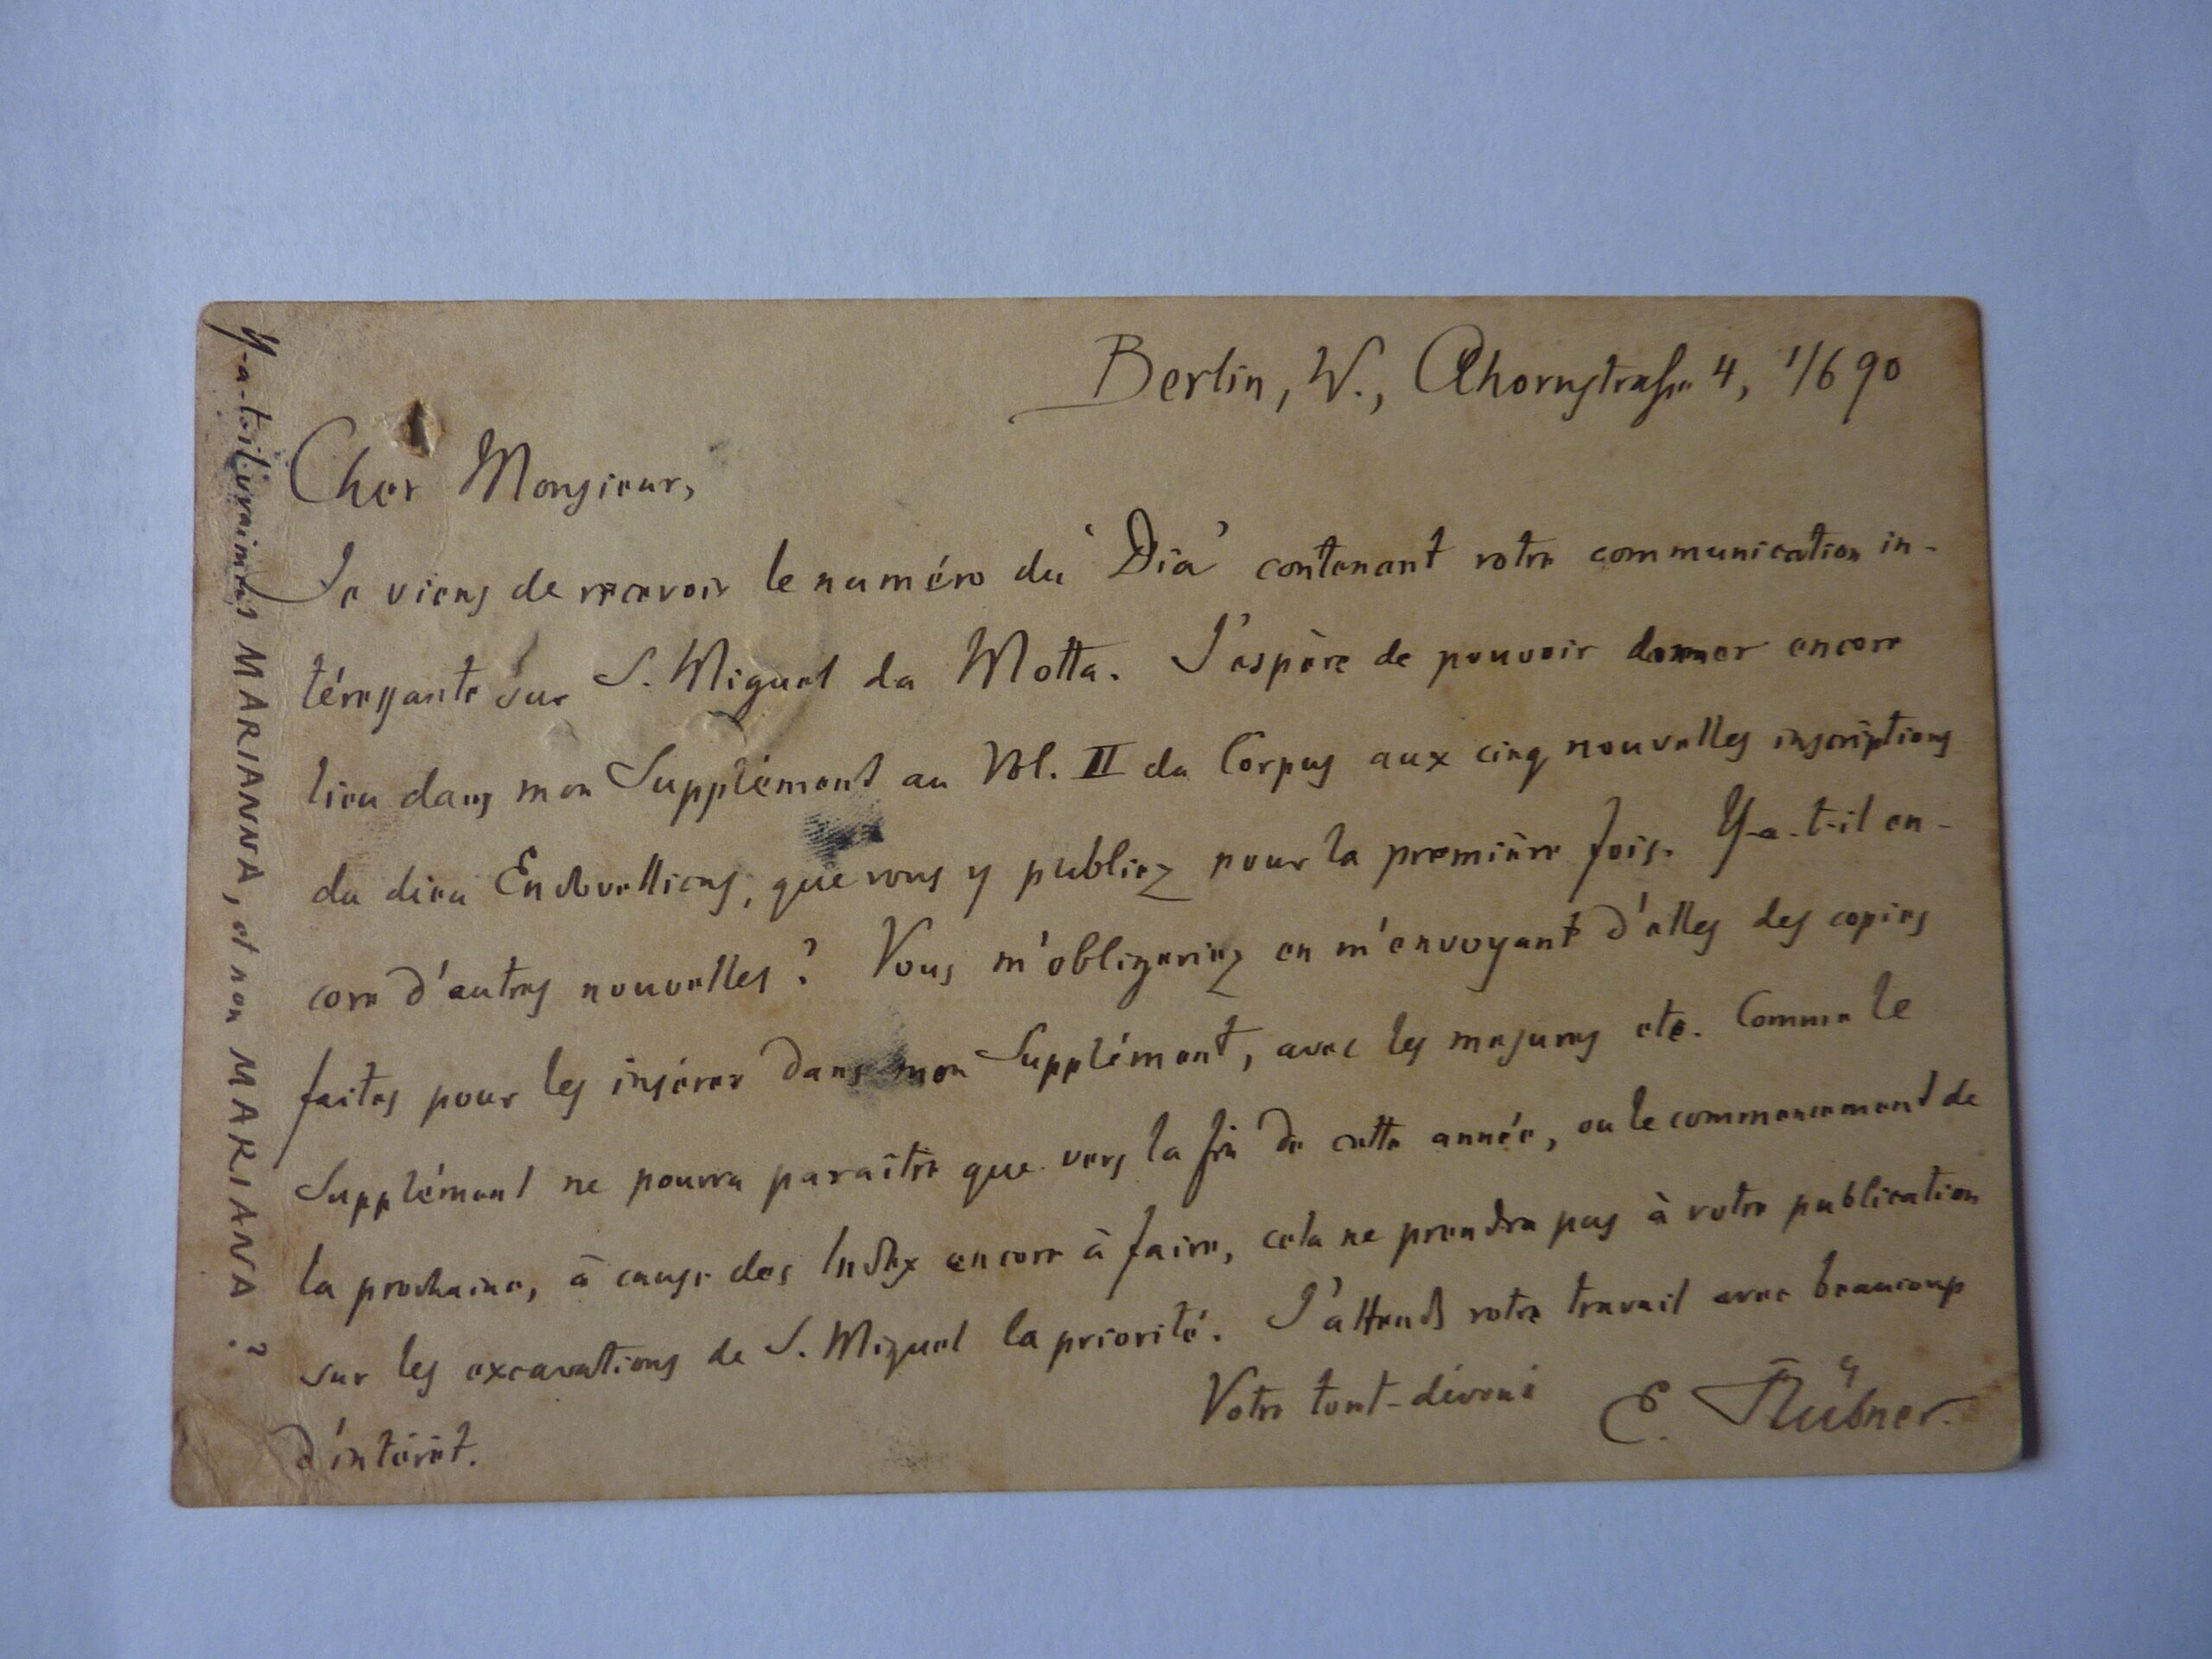 Berlin, W., Ahornstraße 4, 1/6 90
Cher Monsieur,
Je viens de recevoir le numéro du 'Dia' contenant votre communication in-
téressante sur S. Miguel da Motta. J'espère de pouvoir donner encore
lieu dans mon Supplément au Vol. II du Corpus aux cinq nouvelles inscriptions
du dieu Endovellicus, que vous y publiez pour la première fois. Y-a-t-il en-
core d'autres nouvelles? Vous m'obligeriez en m'envoyant d'elles des copies
faites pour les insérer dans mon Supplément, avec les mesures etc. Comme le
Supplément ne pourra paraître que vers la fin de cette année, ou le commencement de
la prochaine, à cause des Index encore à faire, cela ne prendra pas à votre publication
sur les excavations de S. Miguel la priorité. J'attends votre travail avec beaucoup
d'intérêt.
Votre tout-dévoué E. Hübner.
Y-a-t-il vraiment MARIANNA, et non MARIANA?